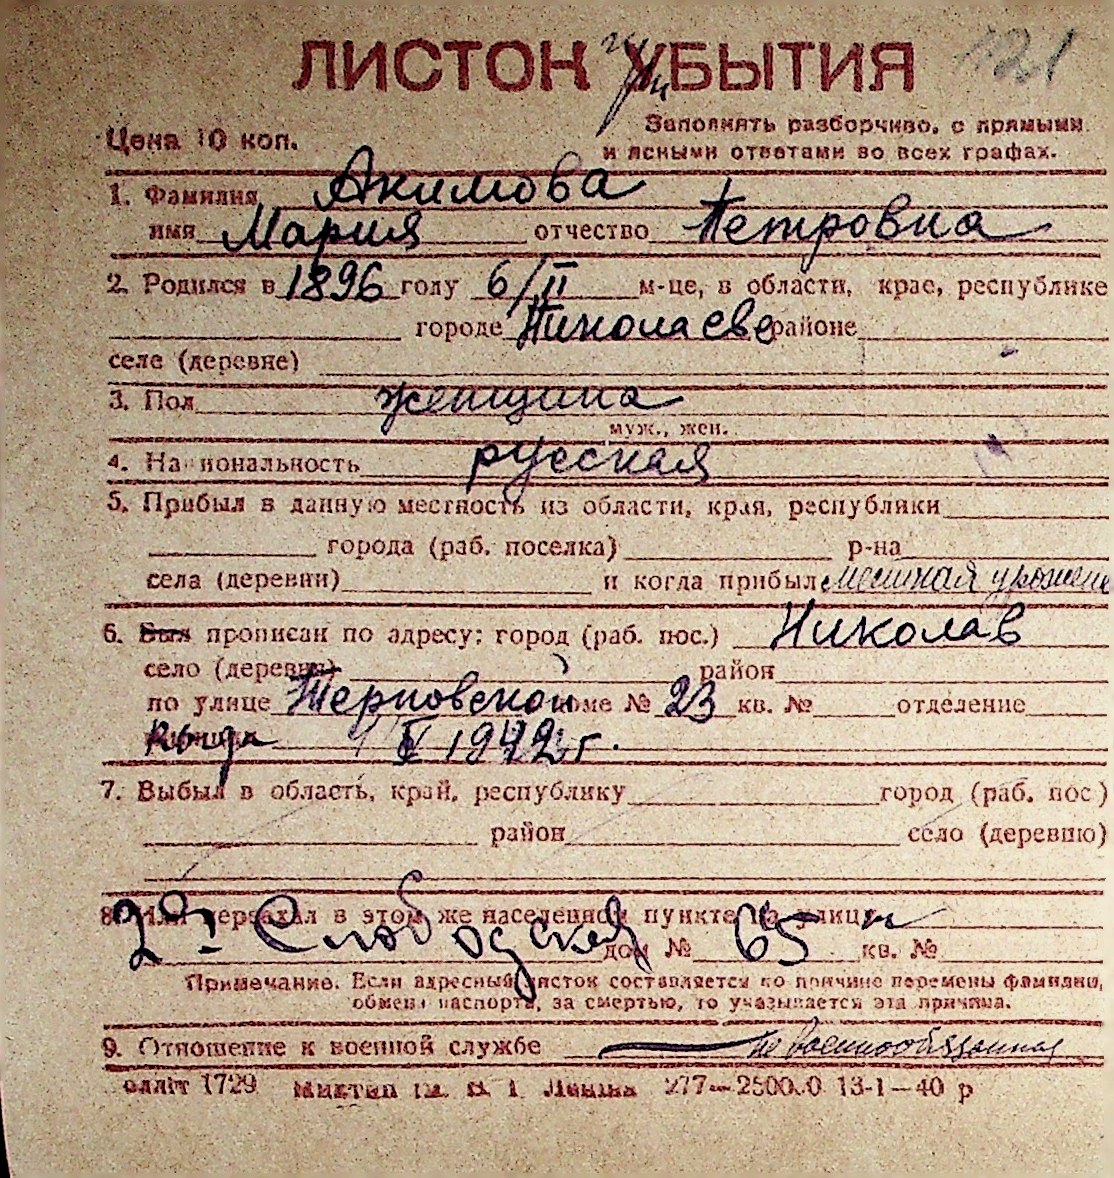 ЛИСТОК УБЫТИЯ 121
при
Цена 10 коп.
Заполнять разборчиво, с прямыми
и ясными ответами во всех графах.
1. Фамилия Акимова
имя Мария отчество Петровна
2. Родился в 1896 году 6/II м-це, в области, крае, республике
городе Николаеве районе
селе (деревне)
3. Пол женщина
муж., жен.
4. Национальность русская
5. Прибыл в данную местность из области, края, республики
города (раб. поселка) р-на
села (деревни) и когда прибыл местная урожен
6. Был прописан по адресу: город (раб. пос.) Николав
село (деревня) район
по улице Терновской доме № 23 кв. № отделение
когда V 1942 г.
7. Выбыл в область, край, республику город (раб. пос)
район село (деревню)
8. Или переехал в этом же населенном пункте на улицу
2я Слободская дом № 65 кв. №
Примечание. Если адресный листок составляется по причине перемены фамилии,
обмена паспорта, за смертью, то указывается эта причина.
9. Отношение к военной службе не военнообязанная
1729 277—2500.0 13-1—40 р